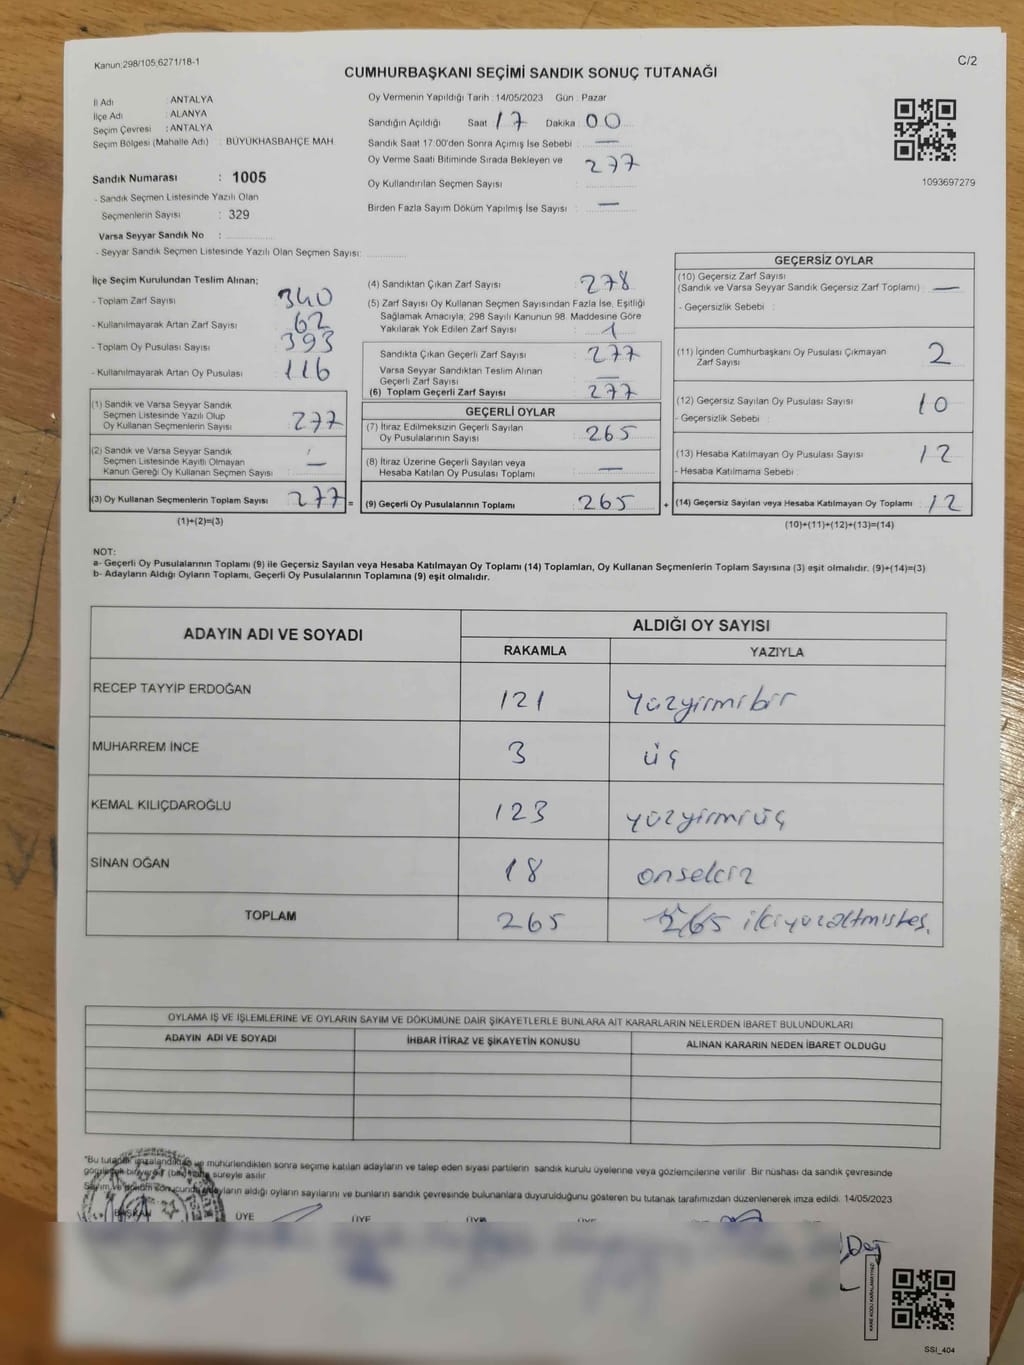 Kanun:298/105,6271/18-1
C/2
CUMHURBAŞKANI SEÇİMİ SANDIK SONUÇ TUTANAĞI
İl Adı : ANTALYA
İlçe Adı : ALANYA
Seçim Çevresi : ANTALYA
Seçim Bölgesi (Mahalle Adı) : BÜYÜKHASBAHÇE MAH
Sandık Numarası : 1005
- Sandık Seçmen Listesinde Yazılı Olan
Seçmenlerin Sayısı : 329
Varsa Seyyar Sandık No :
- Seyyar Sandık Seçmen Listesinde Yazılı Olan Seçmen Sayısı:
Oy Vermenin Yapıldığı Tarih : 14/05/2023 Gün : Pazar
Sandığın Açıldığı Saat 17 Dakika 00
Sandık Saat 17:00'den Sonra Açımış İse Sebebi : —
Oy Verme Saati Bitiminde Sırada Bekleyen ve 277
Oy Kullandırılan Seçmen Sayısı :
Birden Fazla Sayım Döküm Yapılmış İse Sayısı : —
1093697279
İlçe Seçim Kurulundan Teslim Alınan;
- Toplam Zarf Sayısı : 340
- Kullanılmayarak Artan Zarf Sayısı : 62
- Toplam Oy Pusulası Sayısı : 393
- Kullanılmayarak Artan Oy Pusulası : 116
(1) Sandık ve Varsa Seyyar Sandık
Seçmen Listesinde Yazılı Olup
Oy Kullanan Seçmenlerin Sayısı : 277
(2) Sandık ve Varsa Seyyar Sandık
Seçmen Listesinde Kayıtlı Olmayan
Kanun Gereği Oy Kullanan Seçmen Sayısı : —
(3) Oy Kullanan Seçmenlerin Toplam Sayısı : 277
(1)+(2)=(3)
(4) Sandıktan Çıkan Zarf Sayısı : 278
(5) Zarf Sayısı Oy Kullanan Seçmen Sayısından Fazla İse, Eşitliği
Sağlamak Amacıyla; 298 Sayılı Kanunun 98. Maddesine Göre
Yakılarak Yok Edilen Zarf Sayısı : 1
Sandıkta Çıkan Geçerli Zarf Sayısı : 277
Varsa Seyyar Sandıktan Teslim Alınan
Geçerli Zarf Sayısı : —
(6) Toplam Geçerli Zarf Sayısı : 277
GEÇERLİ OYLAR
(7) İtiraz Edilmeksizin Geçerli Sayılan
Oy Pusulalarının Sayısı : 265
(8) İtiraz Üzerine Geçerli Sayılan veya
Hesaba Katılan Oy Pusulası Toplamı : —
= (9) Geçerli Oy Pusulalarının Toplamı : 265
GEÇERSİZ OYLAR
(10) Geçersiz Zarf Sayısı
(Sandık ve Varsa Seyyar Sandık Geçersiz Zarf Toplamı) : —
- Geçersizlik Sebebi :
(11) İçinden Cumhurbaşkanı Oy Pusulası Çıkmayan
Zarf Sayısı : 2
(12) Geçersiz Sayılan Oy Pusulası Sayısı : 10
- Geçersizlik Sebebi :
(13) Hesaba Katılmayan Oy Pusulası Sayısı : 12
- Hesaba Katılmama Sebebi :
+ (14) Geçersiz Sayılan veya Hesaba Katılmayan Oy Toplamı : 12
(10)+(11)+(12)+(13)=(14)
NOT:
a- Geçerli Oy Pusulalarının Toplamı (9) ile Geçersiz Sayılan veya Hesaba Katılmayan Oy Toplamı (14) Toplamları, Oy Kullanan Seçmenlerin Toplam Sayısına (3) eşit olmalıdır. (9)+(14)=(3)
b- Adayların Aldığı Oyların Toplamı, Geçerli Oy Pusulalarının Toplamına (9) eşit olmalıdır.
ADAYIN ADI VE SOYADI ALDIĞI OY SAYISI
RAKAMLA YAZIYLA
RECEP TAYYİP ERDOĞAN 121 yüzyirmibir
MUHARREM İNCE 3 üç
KEMAL KILIÇDAROĞLU 123 yüzyirmiüç
SİNAN OĞAN 18 onsekiz
TOPLAM 265 265 ikiyüzaltmışbeş.
OYLAMA İŞ VE İŞLEMLERİNE VE OYLARIN SAYIM VE DÖKÜMÜNE DAİR ŞİKAYETLERLE BUNLARA AİT KARARLARIN NELERDEN İBARET BULUNDUKLARI
ADAYIN ADI VE SOYADI İHBAR İTİRAZ VE ŞİKAYETİN KONUSU ALINAN KARARIN NEDEN İBARET OLDUĞU
"Bu tutanak imzalandıktan ve mühürlendikten sonra seçime katılan adayların ve talep eden siyasi partilerin sandık kurulu üyelerine veya gözlemcilerine verilir. Bir nüshası da sandık çevresinde
süreyle asılır
adayların aldığı oyların sayılarını ve bunların sandık çevresinde bulunanlara duyurulduğunu gösteren bu tutanak tarafımızdan düzenlenerek imza edildi. 14/05/2023
BAŞKAN ÜYE ÜYE ÜYE ÜYE
KARE KODU KARALAMAYINIZ!
SSI_404